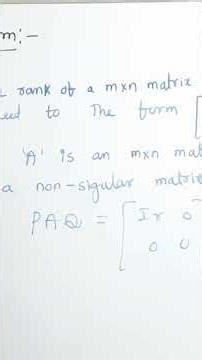 m:-
rank of a mxn matrix
to The form [
'A' is an mxn mat
a non-sigular matrix
PAQ = [ Ir 0
0 0